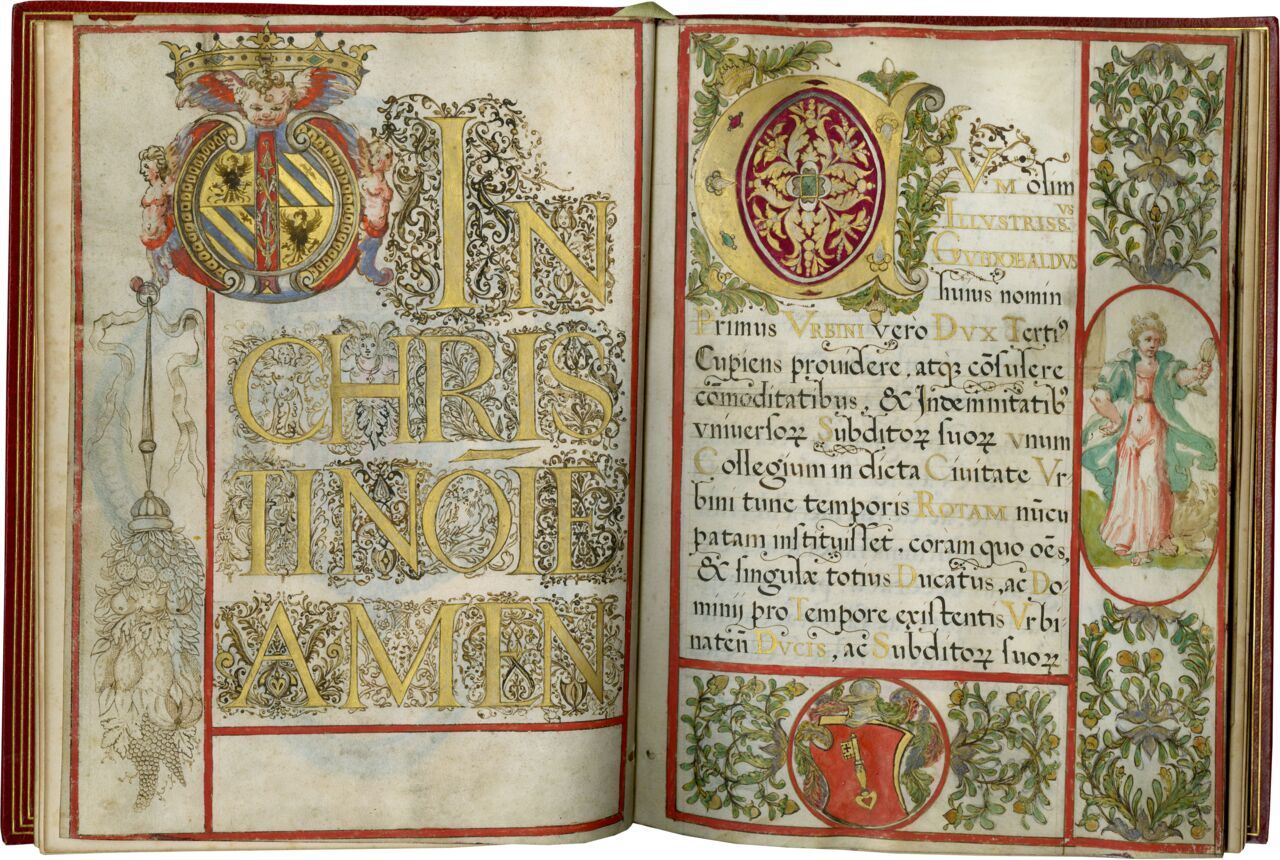 IN
CHRIS
TI NÔIE
AMEN
CVM olim
ILLVSTRISS.vs
GVIDIOBALDVS
huius nomin
Primus VRBINI vero DVX Terti⁹
Cupiens prouidere, atq̨ cõsulere
cõmoditatibus, & Indemnitatib⁹
vniuersoꝝ Subditoꝝ suoꝝ vnum
Collegium in dicta Ciuitate Vr-
bini tunc temporis ROTAM nũcu
patam instituisset, coram quo oẽs,
& singulæ totius Ducatus, ac Do-
minij pro Tempore existentis Vrbi-
nateñ DVCIS, ac Subditoꝝ suoꝝ